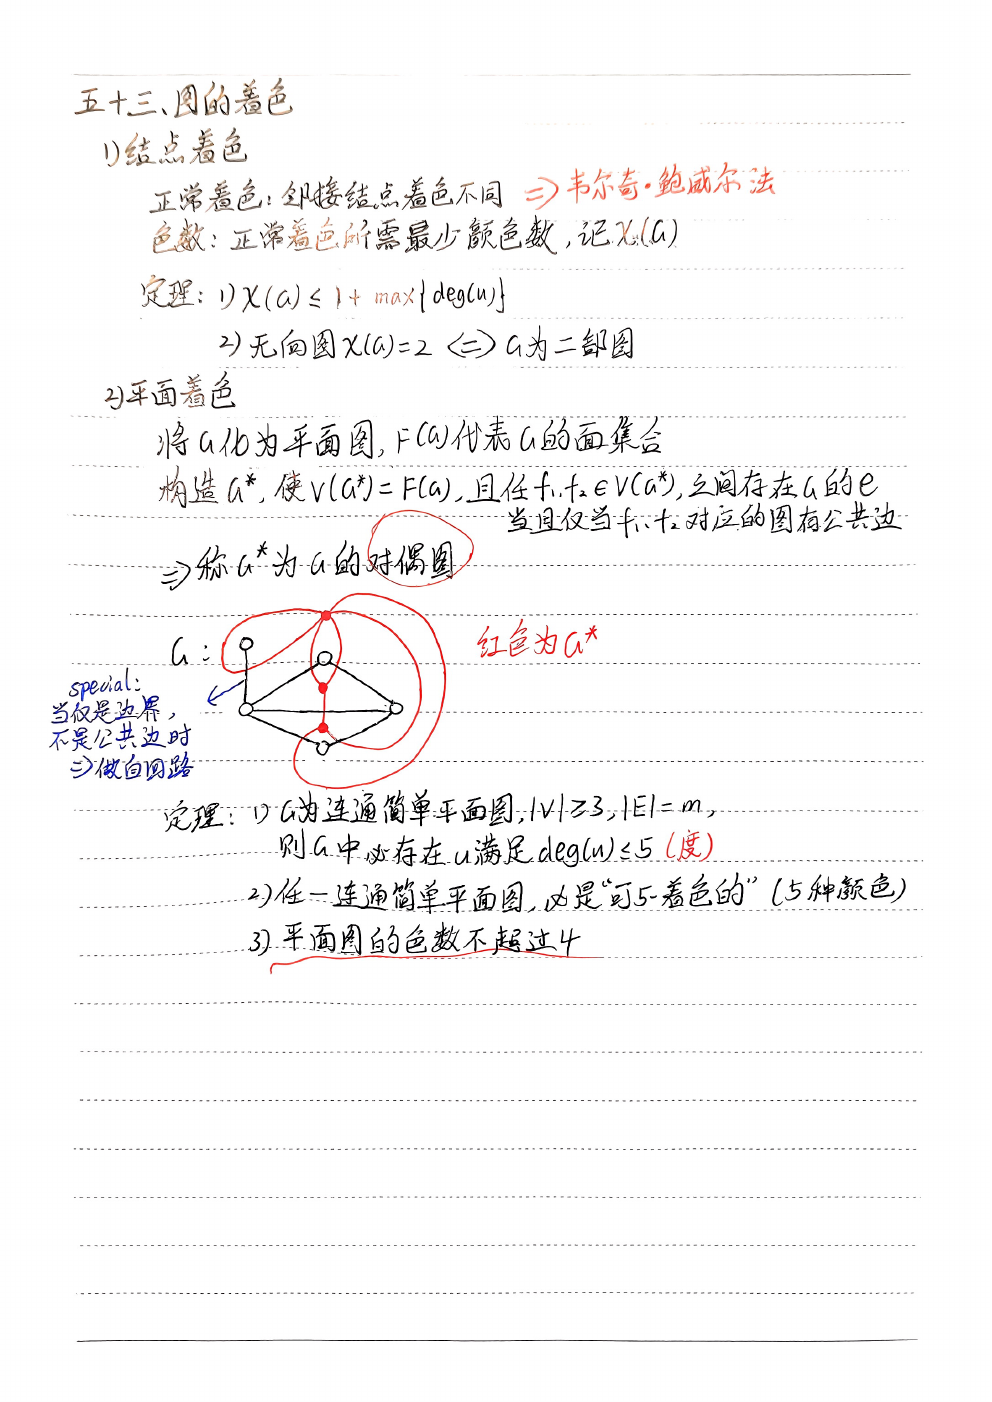 五十三、图的着色
1)结点着色
正常着色：邻接结点着色不同 => 韦尔奇·鲍威尔法
色数：正常着色所需最少颜色数，记χ(G)
定理：1) χ(G) ≤ 1+ max{deg(u)}
2) 无向图χ(G)=2 <=> G为二部图
2)平面着色
将G化为平面图，F(G)代表G的面集合
构造G*，使V(G*)=F(G)，且任f₁、f₂∈V(G*)，之间存在G的e
当且仅当f₁、f₂对应的图有公共边
=> 称G*为G的对偶图
G：
红色为G*
special：
当仅是边界，
不是公共边时
=> 做自回路
定理：1) G为连通简单平面图，|V|≥3，|E|=m，
则G中必存在u满足deg(u)≤5（度）
2) 任一连通简单平面图，必是“可5-着色的”（5种颜色）
3) 平面图的色数不超过4